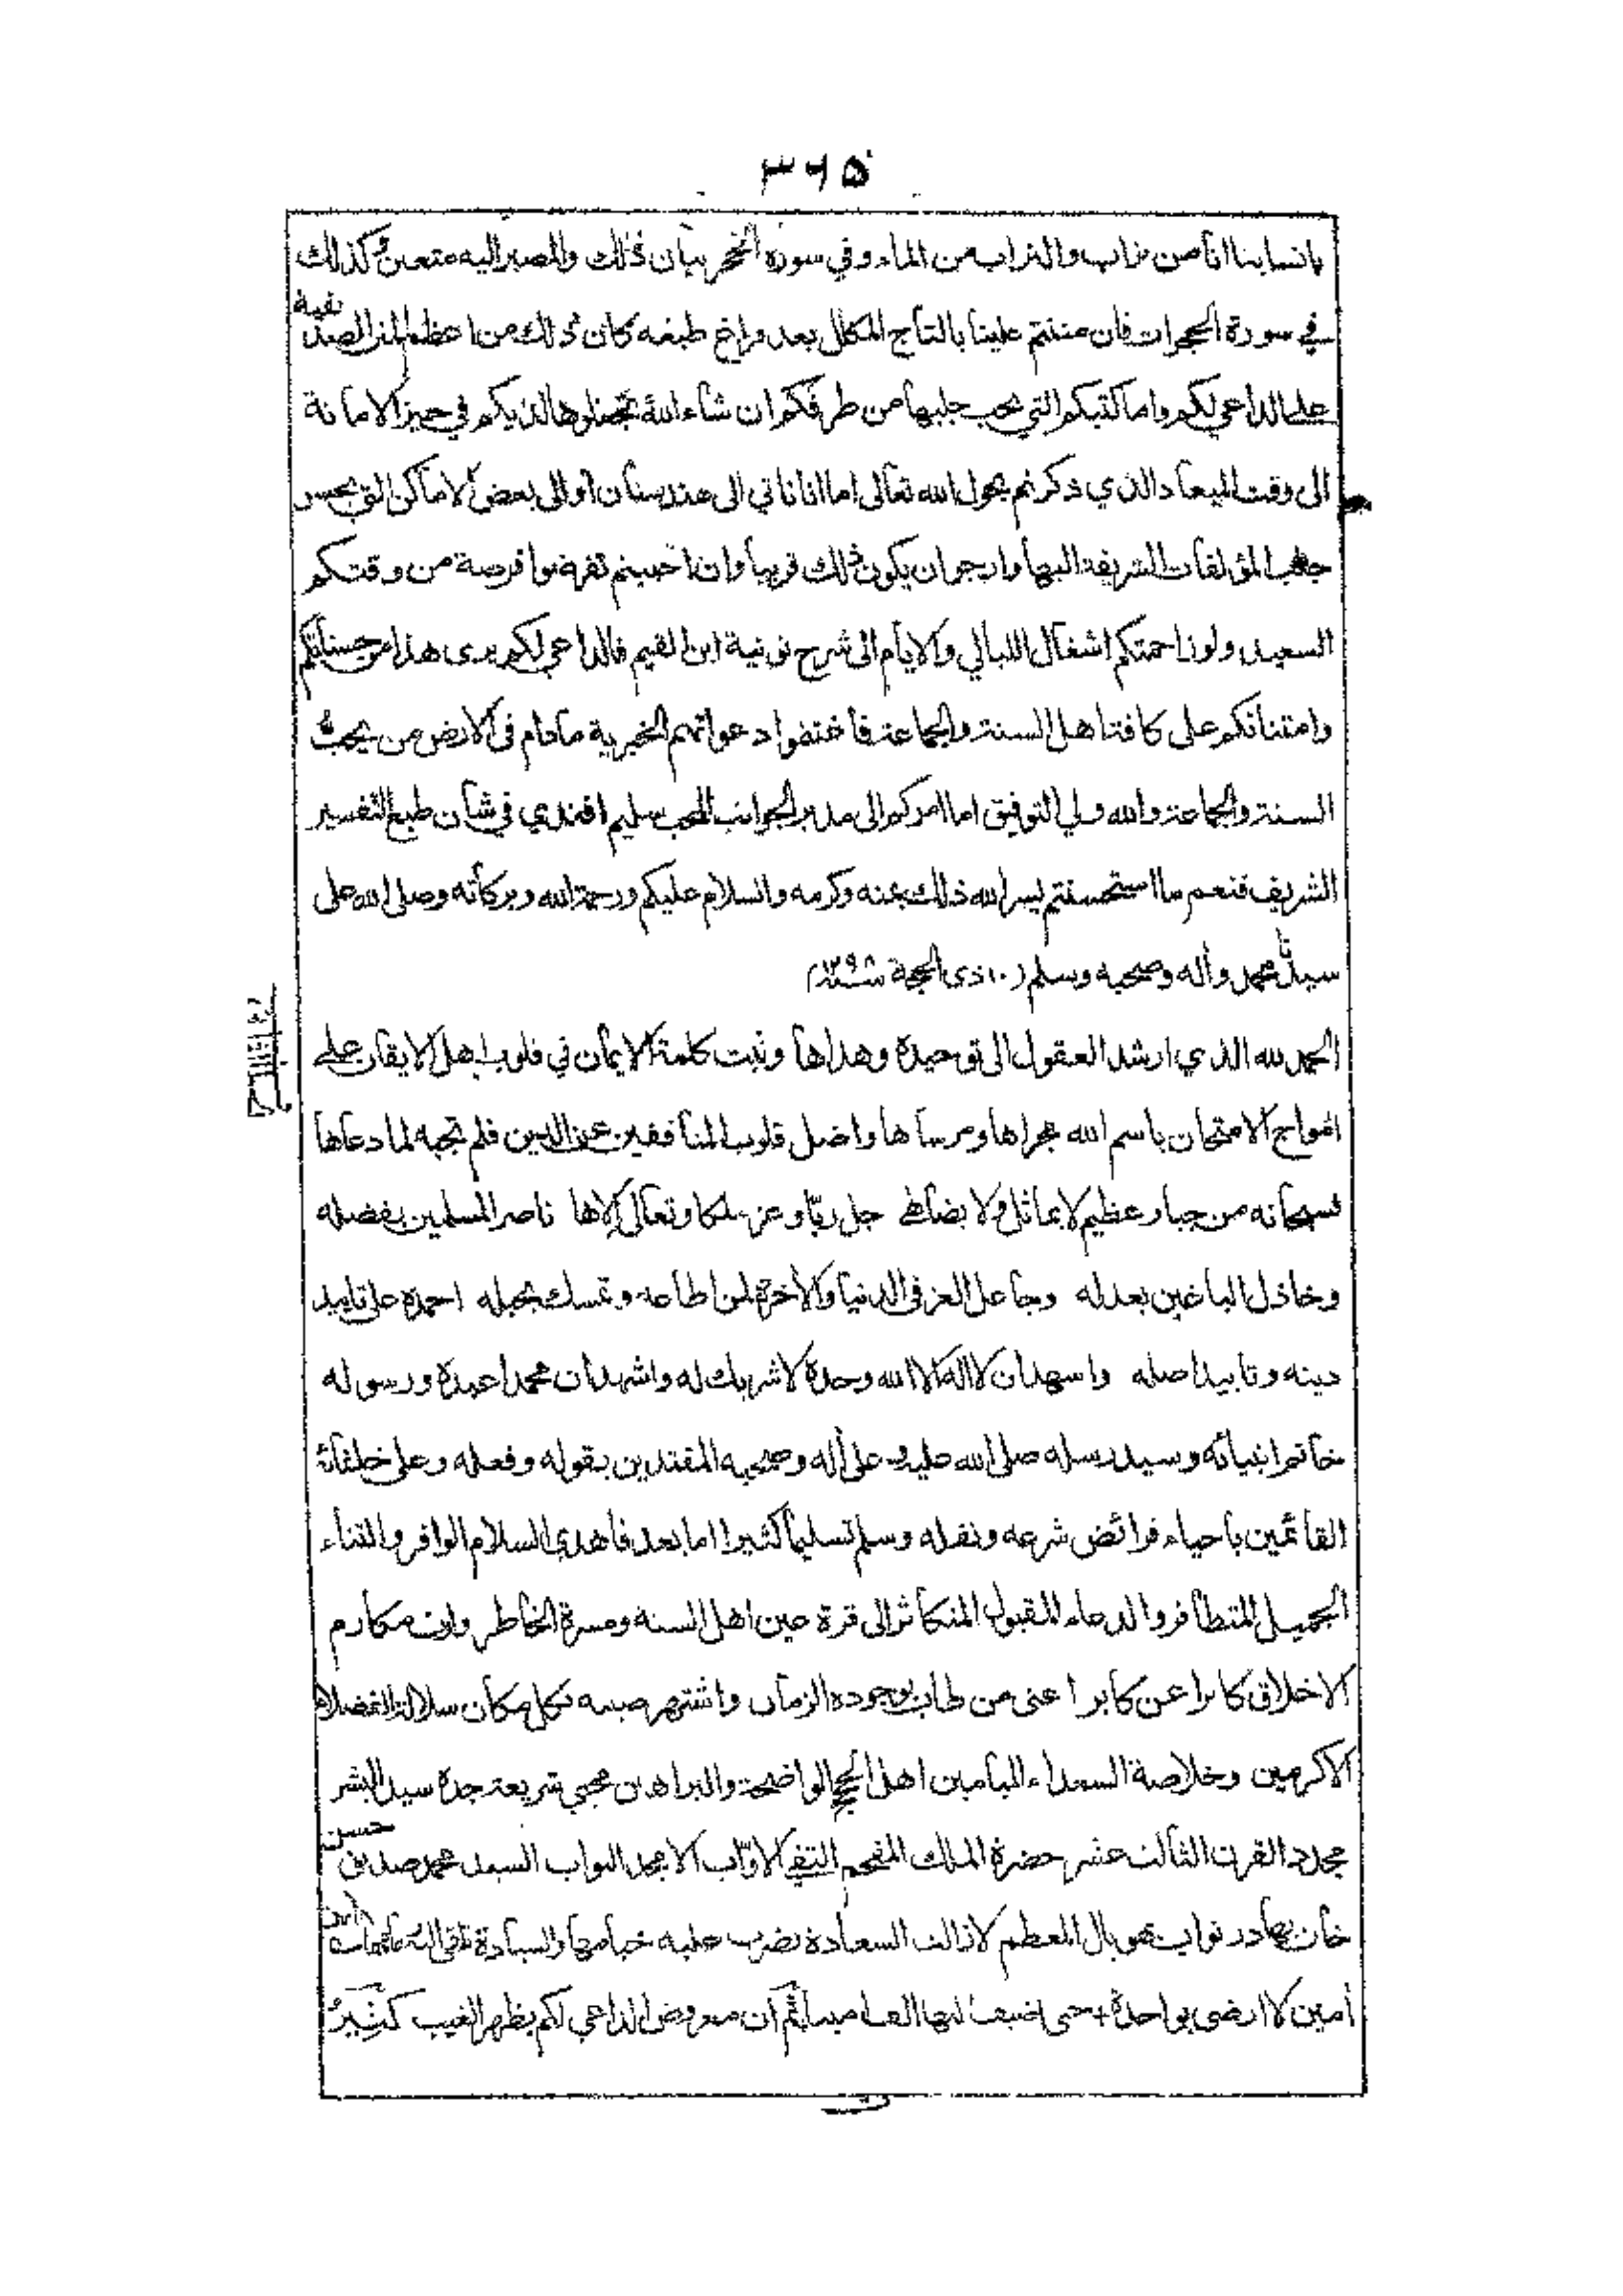 ٣٦٥
بانسابنا انا من تراب والتراب من الماء وفي سورة الحجر بيان ذلك والمصير اليه متعين كذلك
في سورة الحجرات فان مننتم علينا بالتاج المكلل بعد فراغ طبعه كان ذلك من اعظم المنن الصديقية
على الداعي لكم واما كتبكم التي يجب جلبها من طرفكم ان شاء الله تجعلوها لديكم في حيز الامانة
الى وقت الميعاد الذي ذكرتم بحول الله تعالى اما انا ناتي الى هندستان او الى بعض الاماكن التي يحسن
جلب المؤلفات الشريفة اليها وارجو ان يكون ذلك قريبا وان احببتم تفرغوا فرصة من وقتكم
السعيد ولو زاحمتكم اشغال الليالي والايام الى شرح نونية ابن القيم فالداعي لكم يرى هذا من حسناتكم
وامتنانكم على كافة اهل السنة والجماعة فاغتنموا دعواتهم الخيرية ما دام في الارض من يحب
السنة والجماعة والله ولي التوفيق اما امركم الى مدير الجوائب المحب سليم افندي في شأن طبع التفسير
الشريف فنعم ما استحسنتم يسر الله ذلك بمنه وكرمه والسلام عليكم ورحمة الله وبركاته وصلى الله على
سيدنا محمد وآله وصحبه وسلم (١٠ ذى الحجة سنة ١٢٩٨)
الحمد لله الذي ارشد العقول الى توحيده وهداها وثبت كلمة الايمان في قلوب اهل الايقان على
امواج الامتحان باسم الله مجراها ومرساها واضل قلوب المنافقين عن الدين فلم تجبه لما دعاها
فسبحانه من جبار عظيم لا يماثل ولا يضاهى جل ربا وعز ملكا وتعالى الاها ناصر المسلمين بفضله
وخاذل الباغين بعدله وجاعل العز في الدنيا والآخرة لمن اطاعه وتمسك بحبله احمده على تاييد
دينه وتابيد اصله واشهد ان لا اله الا الله وحده لا شريك له واشهد ان محمدا عبده ورسوله
خاتم انبيائه وسيد رسله صلى الله عليه وعلى آله وصحبه المقتدين بقوله وفعله وعلى خلفائه
القائمين باحياء فرائض شرعه ونفله وسلم تسليما كثيرا اما بعد فاهدي السلام الوافر والثناء
الجميل المتظافر والدعاء المقبول المتكاثر الى قرة عين اهل السنة ومسرة الخاطر وارث مكارم
الاخلاق كابرا عن كابر اعنى من طاب بوجوده الزمان واشتهر صيته بكل مكان سلالة الفضلاء
الاكرمين وخلاصة السعداء الميامين اهل الحجج الواضحة والبراهين محيي شريعة جده سيد البشر
مجدد القرن الثالث عشر حضرة الملك المفخم التقي الاواب الامجد النواب السيد محمد صديق حسن
خان بهادر نواب بهوبال المعظم لا زالت السعادة تضرب عليه خيامها والسيادة تلقى اليه
آمين لا ارضى بواحدة + حتى اضيف اليها الف آمينا ثم ان معروض الداعي لكم بظهر الغيب كثير